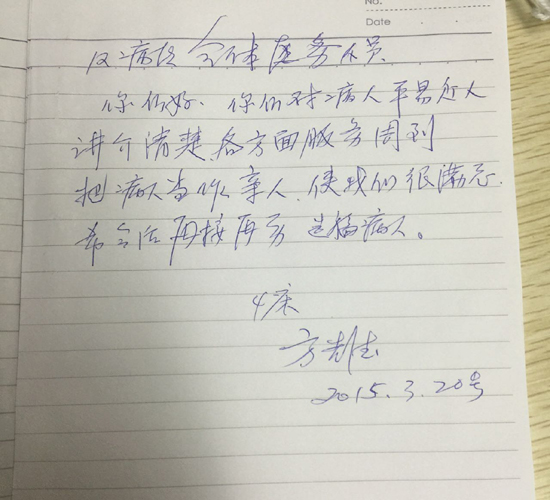 No.
Date
病区全体医务人员
你们好。你们对病人平易近人
讲介清楚各方面服务周到
把病人当作亲人,使我们很满意.
希今后再接再厉 造福病人。
4床
方
2015.3.20号